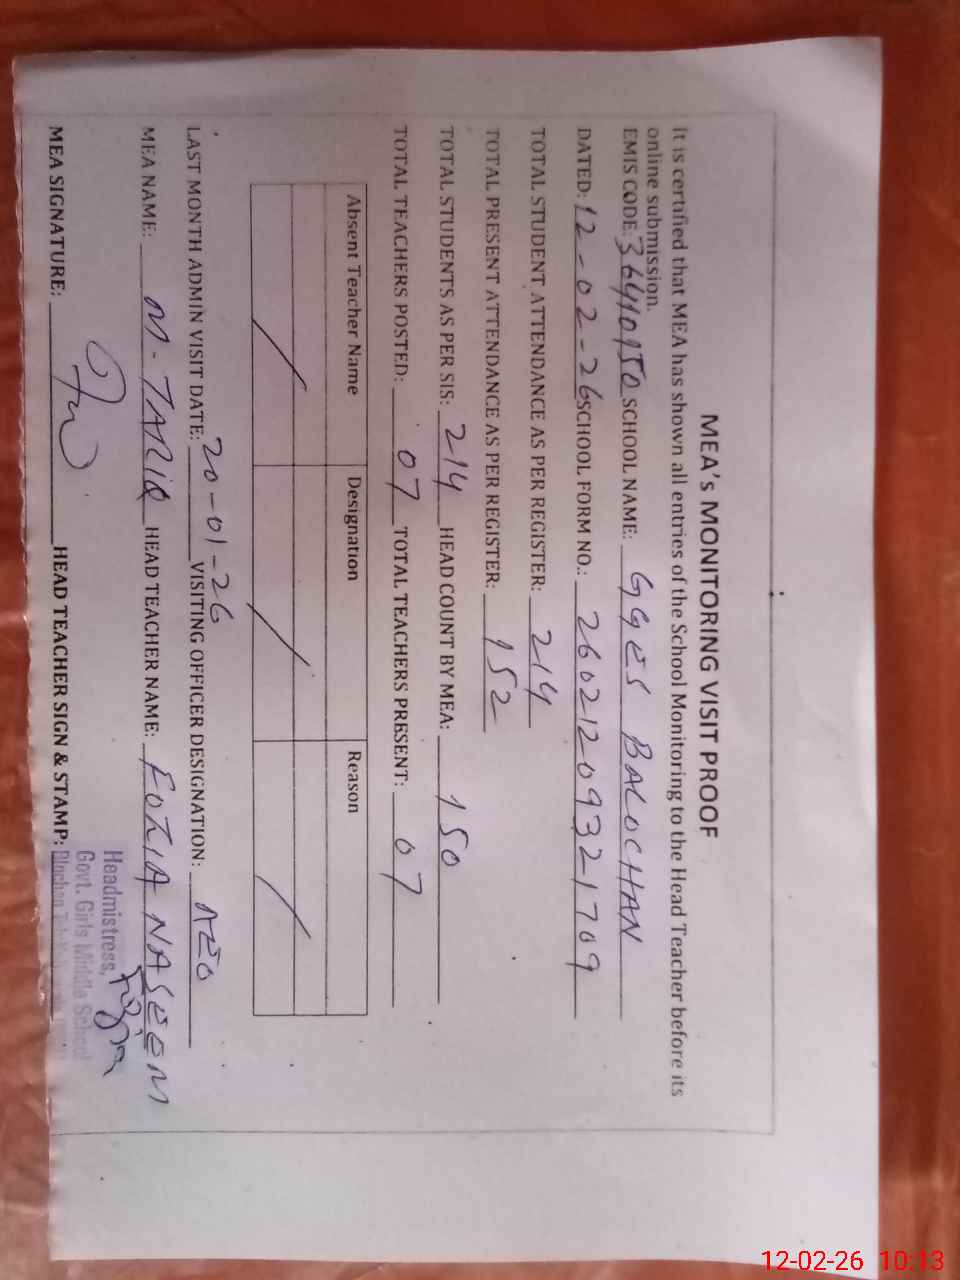 MEA's MONITORING VISIT PROOF
It is certified that MEA has shown all entries of the School Monitoring to the Head Teacher before its
online submission.
EMIS CODE: 36410950 SCHOOL NAME: GGES BALOCHAN
DATED: 12-02-26 SCHOOL FORM NO.: 26021209321709
TOTAL STUDENT ATTENDANCE AS PER REGISTER: 214
TOTAL PRESENT ATTENDANCE AS PER REGISTER: 152
TOTAL STUDENTS AS PER SIS: 214 HEAD COUNT BY MEA: 150
TOTAL TEACHERS POSTED: 07 TOTAL TEACHERS PRESENT: 07
Absent Teacher Name Designation Reason
LAST MONTH ADMIN VISIT DATE: 20-01-26 VISITING OFFICER DESIGNATION: AEO
MEA NAME: M. TARIQ HEAD TEACHER NAME: FOZIA NASEEM
MEA SIGNATURE: HEAD TEACHER SIGN & STAMP:
Headmistress,
Govt. Girls Middle School
12-02-26 10:13